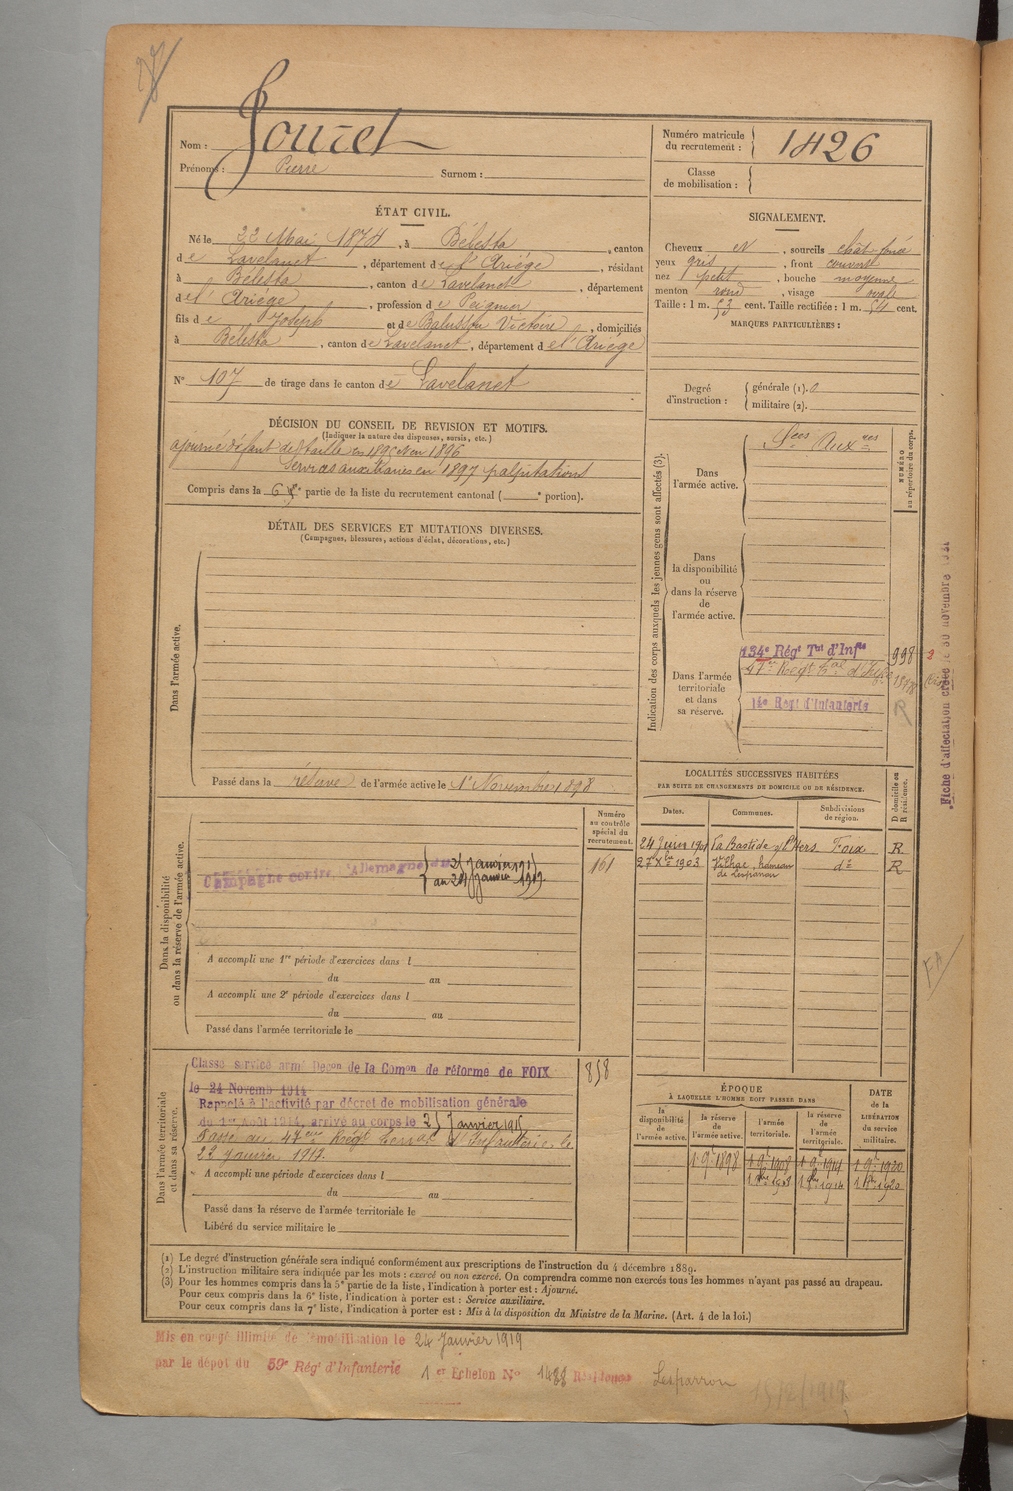 Nom : Jouret
Prénoms : Pierre Surnom :
Numéro matricule du recrutement : 1426
Classe de mobilisation :
ÉTAT CIVIL.
Né le 22 Mai 1874, à Bélesta, canton
de Lavelanet, département de l'Ariège, résidant
à Bélesta, canton de Lavelanet, département
de l'Ariège, profession de Peignier
fils de Joseph et de Victoire, domiciliés
à Bélesta, canton de Lavelanet, département de l'Ariège
N° 107 de tirage dans le canton de Lavelanet
SIGNALEMENT.
Cheveux et N, sourcils chat. foncé
yeux gris, front couvert
nez petit, bouche moyenne
menton rond, visage ovale
Taille : 1 m. 53 cent. Taille rectifiée : 1 m. 54 cent.
MARQUES PARTICULIÈRES :
Degré d'instruction : générale (1). 0
militaire (2).
DÉCISION DU CONSEIL DE REVISION ET MOTIFS.
(Indiquer la nature des dispenses, sursis, etc.)
ajourné défaut de taille en 1895 et en 1896
Services auxiliaires en 1897 palpitations
Compris dans la 6e partie de la liste du recrutement cantonal ( e portion).
DÉTAIL DES SERVICES ET MUTATIONS DIVERSES.
(Campagnes, blessures, actions d'éclat, décorations, etc.)
Dans l'armée active.
Passé dans la réserve de l'armée active le 1er Novembre 1898
Indication des corps auxquels les jeunes gens sont affectés (3).
NUMÉRO au répertoire du corps.
Dans l'armée active.
Sces Auxres
Dans la disponibilité ou dans la réserve de l'armée active.
Dans l'armée territoriale et dans sa réserve.
134e Régt Tal d'Infie 998 2
47e Régt Tal d'Infie
14e Regt d'Infanterie R
Fiche d'affectation créée le 30 novembre
LOCALITÉS SUCCESSIVES HABITÉES
PAR SUITE DE CHANGEMENTS DE DOMICILE OU DE RÉSIDENCE.
D domicile ou R résidence.
Dates. Communes. Subdivisions de région.
24 Juin 1901 La Bastide s/ l'Hers Foix R
27 Xbre 1903 Vilhac, hameau de Lesparrou do R
Dans la disponibilité ou dans la réserve de l'armée active.
Numéro au contrôle spécial du recrutement.
161
Campagne contre l'Allemagne du 25 Janvier 1915
au 24 Janvier 1919.
A accompli une 1re période d'exercices dans l
du au
A accompli une 2e période d'exercices dans l
du au
Passé dans l'armée territoriale le
Dans l'armée territoriale et dans sa réserve.
Classé service armé Décon de la Comon de réforme de FOIX 858
le 24 Novemb 1914
Rappelé à l'activité par décret de mobilisation générale
du 1er Août 1914, arrivé au corps le 25 Janvier 1915
Passé au 47eme Régt Territ d'Infanterie le
22 Janvier 1917.
A accompli une période d'exercices dans l
du au
Passé dans la réserve de l'armée territoriale le
Libéré du service militaire le
ÉPOQUE
À LAQUELLE L'HOMME DOIT PASSER DANS
DATE de la LIBÉRATION du service militaire.
la disponibilité de l'armée active. la réserve de l'armée active. l'armée territoriale. la réserve de l'armée territoriale.
1 9bre 1898 1 9bre 1908 1 9bre 1914 1 9bre 1920
(1) Le degré d'instruction générale sera indiqué conformément aux prescriptions de l'instruction du 4 décembre 1889.
(2) L'instruction militaire sera indiquée par les mots : exercé ou non exercé. On comprendra comme non exercés tous les hommes n'ayant pas passé au drapeau.
(3) Pour les hommes compris dans la 5e partie de la liste, l'indication à porter est : Ajourné.
Pour ceux compris dans la 6e liste, l'indication à porter est : Service auxiliaire.
Pour ceux compris dans la 7e liste, l'indication à porter est : Mis à la disposition du Ministre de la Marine. (Art. 4 de la loi.)
Mis en congé illimité de démobilisation le 24 Janvier 1919
par le dépôt du 59e Régt d'Infanterie 1er Echelon No 1488 Résidence Lesparrou